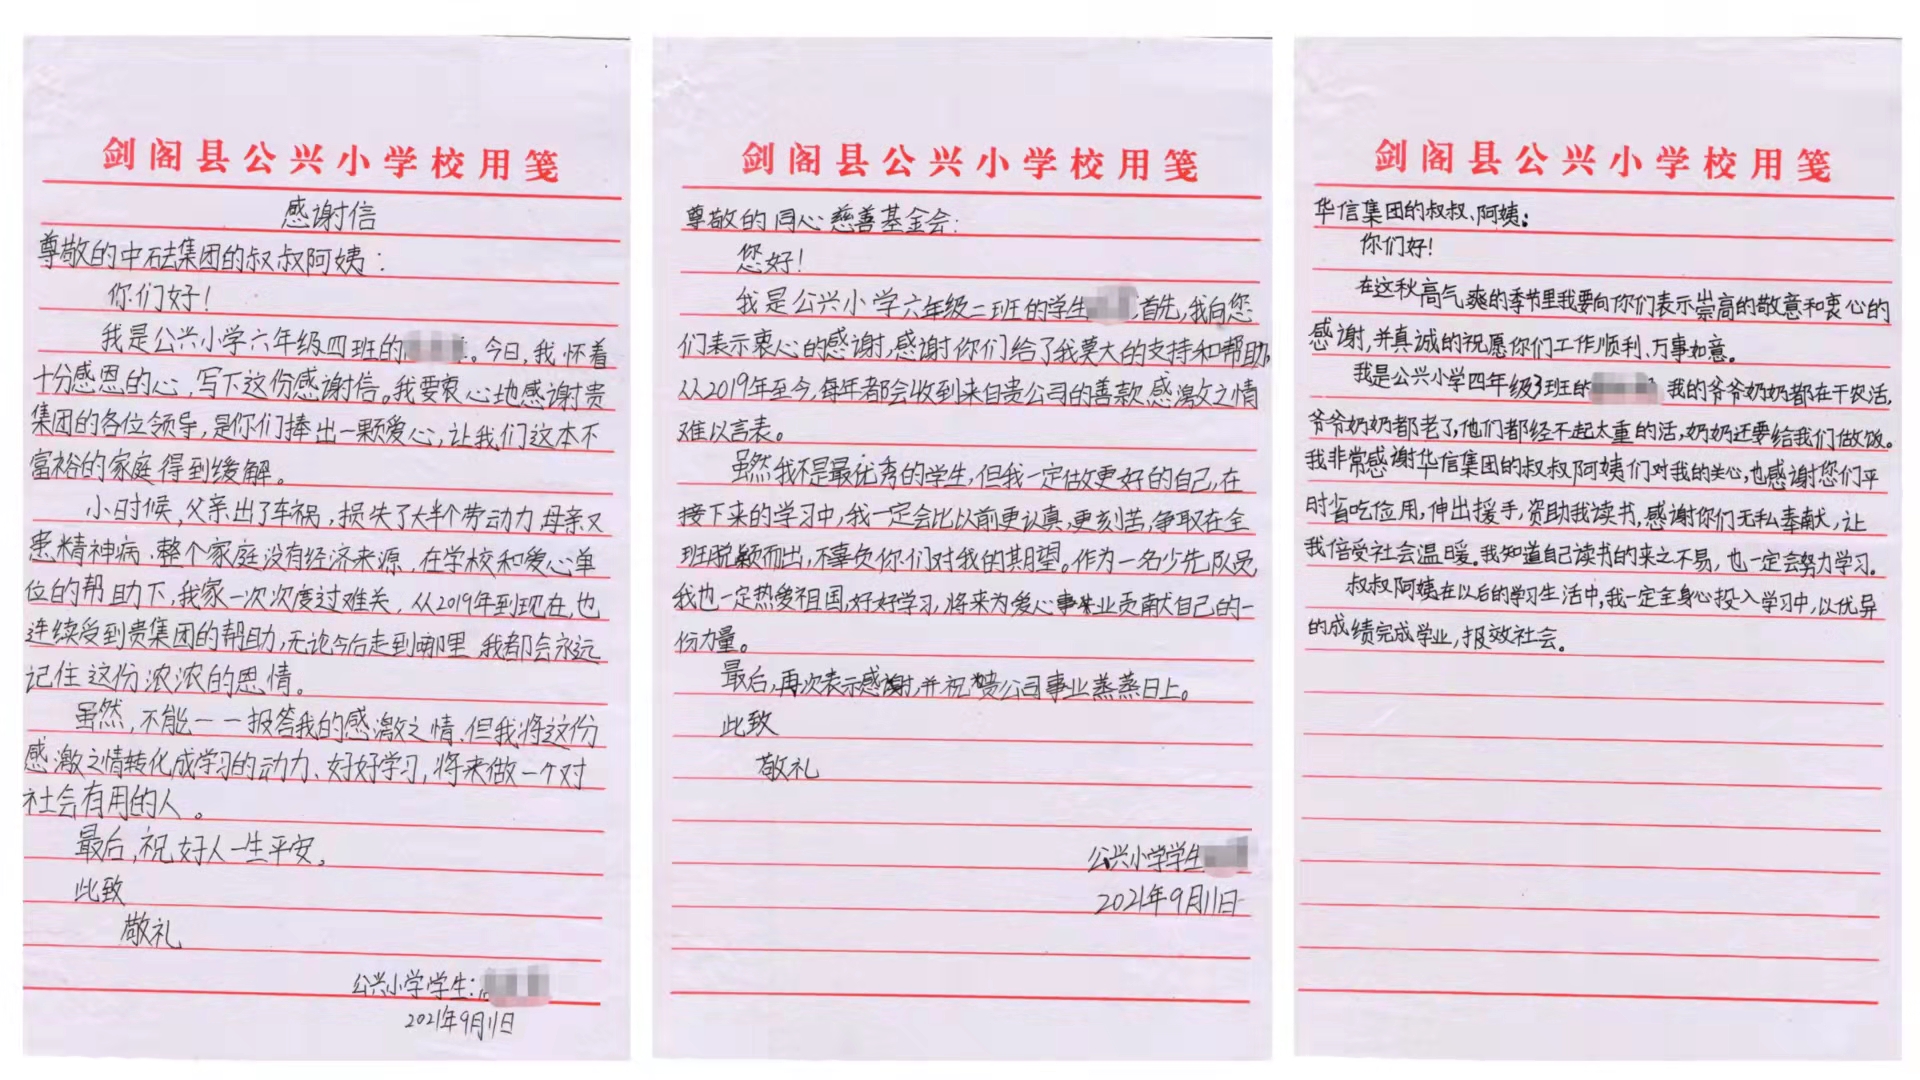 剑阁县公兴小学校用笺
感谢信
尊敬的中砝集团的叔叔阿姨：
你们好！
我是公兴小学六年级四班的 。今日，我怀着
十分感恩的心，写下这份感谢信。我要衷心地感谢贵
集团的各位领导，是你们捧出一颗爱心，让我们这本不
富裕的家庭得到缓解。
小时候，父亲出了车祸，损失了大半个劳动力，母亲又
患精神病、整个家庭没有经济来源，在学校和爱心单
位的帮助下，我家一次次度过难关，从2019年到现在，也
连续受到贵集团的帮助，无论今后走到哪里，我都会永远
记住这份浓浓的恩情。
虽然，不能一一报答我的感激之情、但我将这份
感激之情转化成学习的动力、好好学习，将来做一个对
社会有用的人。
最后，祝好人一生平安。
此致
敬礼
公兴小学学生：
2021年9月11日
剑阁县公兴小学校用笺
尊敬的同心慈善基金会：
您好！
我是公兴小学六年级二班的学生 ，首先，我向您
们表示衷心的感谢，感谢你们给了我莫大的支持和帮助，
从2019年至今，每年都会收到来自贵公司的善款，感激之情
难以言表。
虽然我不是最优秀的学生，但我一定做更好的自己，在
接下来的学习中，我一定会比以前更认真，更刻苦，争取在全
班脱颖而出，不辜负你们对我的期望。作为一名少先队员
我也一定热爱祖国，好好学习，将来为爱心事业贡献自己的一
份力量。
最后，再次表示感谢，并祝贵公司事业蒸蒸日上。
此致
敬礼
公兴小学学生
2021年9月11日
剑阁县公兴小学校用笺
华信集团的叔叔、阿姨：
你们好！
在这秋高气爽的季节里我要向你们表示崇高的敬意和衷心的
感谢，并真诚的祝愿你们工作顺利、万事如意。
我是公兴小学四年级3班的 ，我的爷爷奶奶都在干农活，
爷爷奶奶都老了，他们都经不起太重的活，奶奶还要给我们做饭。
我非常感谢华信集团的叔叔阿姨们对我的关心，也感谢您们平
时省吃俭用，伸出援手，资助我读书，感谢你们无私奉献，让
我倍受社会温暖。我知道自己读书的来之不易，也一定会努力学习。
叔叔阿姨在以后的学习生活中，我一定全身心投入学习中，以优异
的成绩完成学业，报效社会。